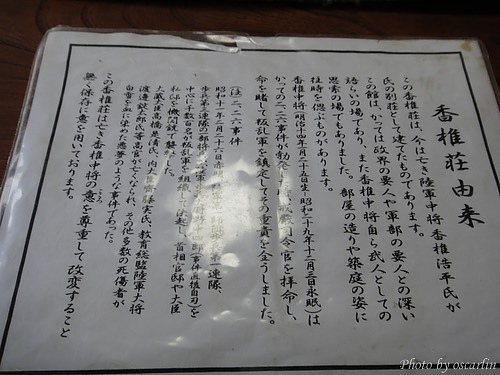 香椎荘由来
この香椎荘は、今は亡き陸軍中将香椎浩平氏が
氏の別荘として建てたものであります。
この館は、かつては政界の要人や軍部の要人との深い
語らいの場でもあり、また香椎中将自ら武人としての
思索の場でもありました。部屋の造りや築庭の姿に
往時を偲ぶものがあります。
香椎中将(明治十四年一月二十五日生、昭和二十九年十二月三日永眠)は
かつての二・二六事件が勃発した時 戒厳司令官を拝命し、
命を賭して叛乱軍を鎮定してその重責を全うしました。
(注)二・二六事件
昭和十一年二月二十六日 第一連隊、
歩兵第三連隊の部 事件直後自刃)を
中心に千数百名が叛乱軍を組織して決起し、首相官邸や大臣
私邸を機関銃で襲いました。
大蔵大臣高橋是清氏、内大臣斎藤実氏、教育総監陸軍大将
渡辺錠太郎氏等高官が亡くなられ、その他多数の死傷者が
白雪を血に染めた悪夢のような事件であった。
この香椎荘は亡き香椎中将の意を尊重して改変すること
無く保存に意を用いております。
こころ
Photo by oscarlin